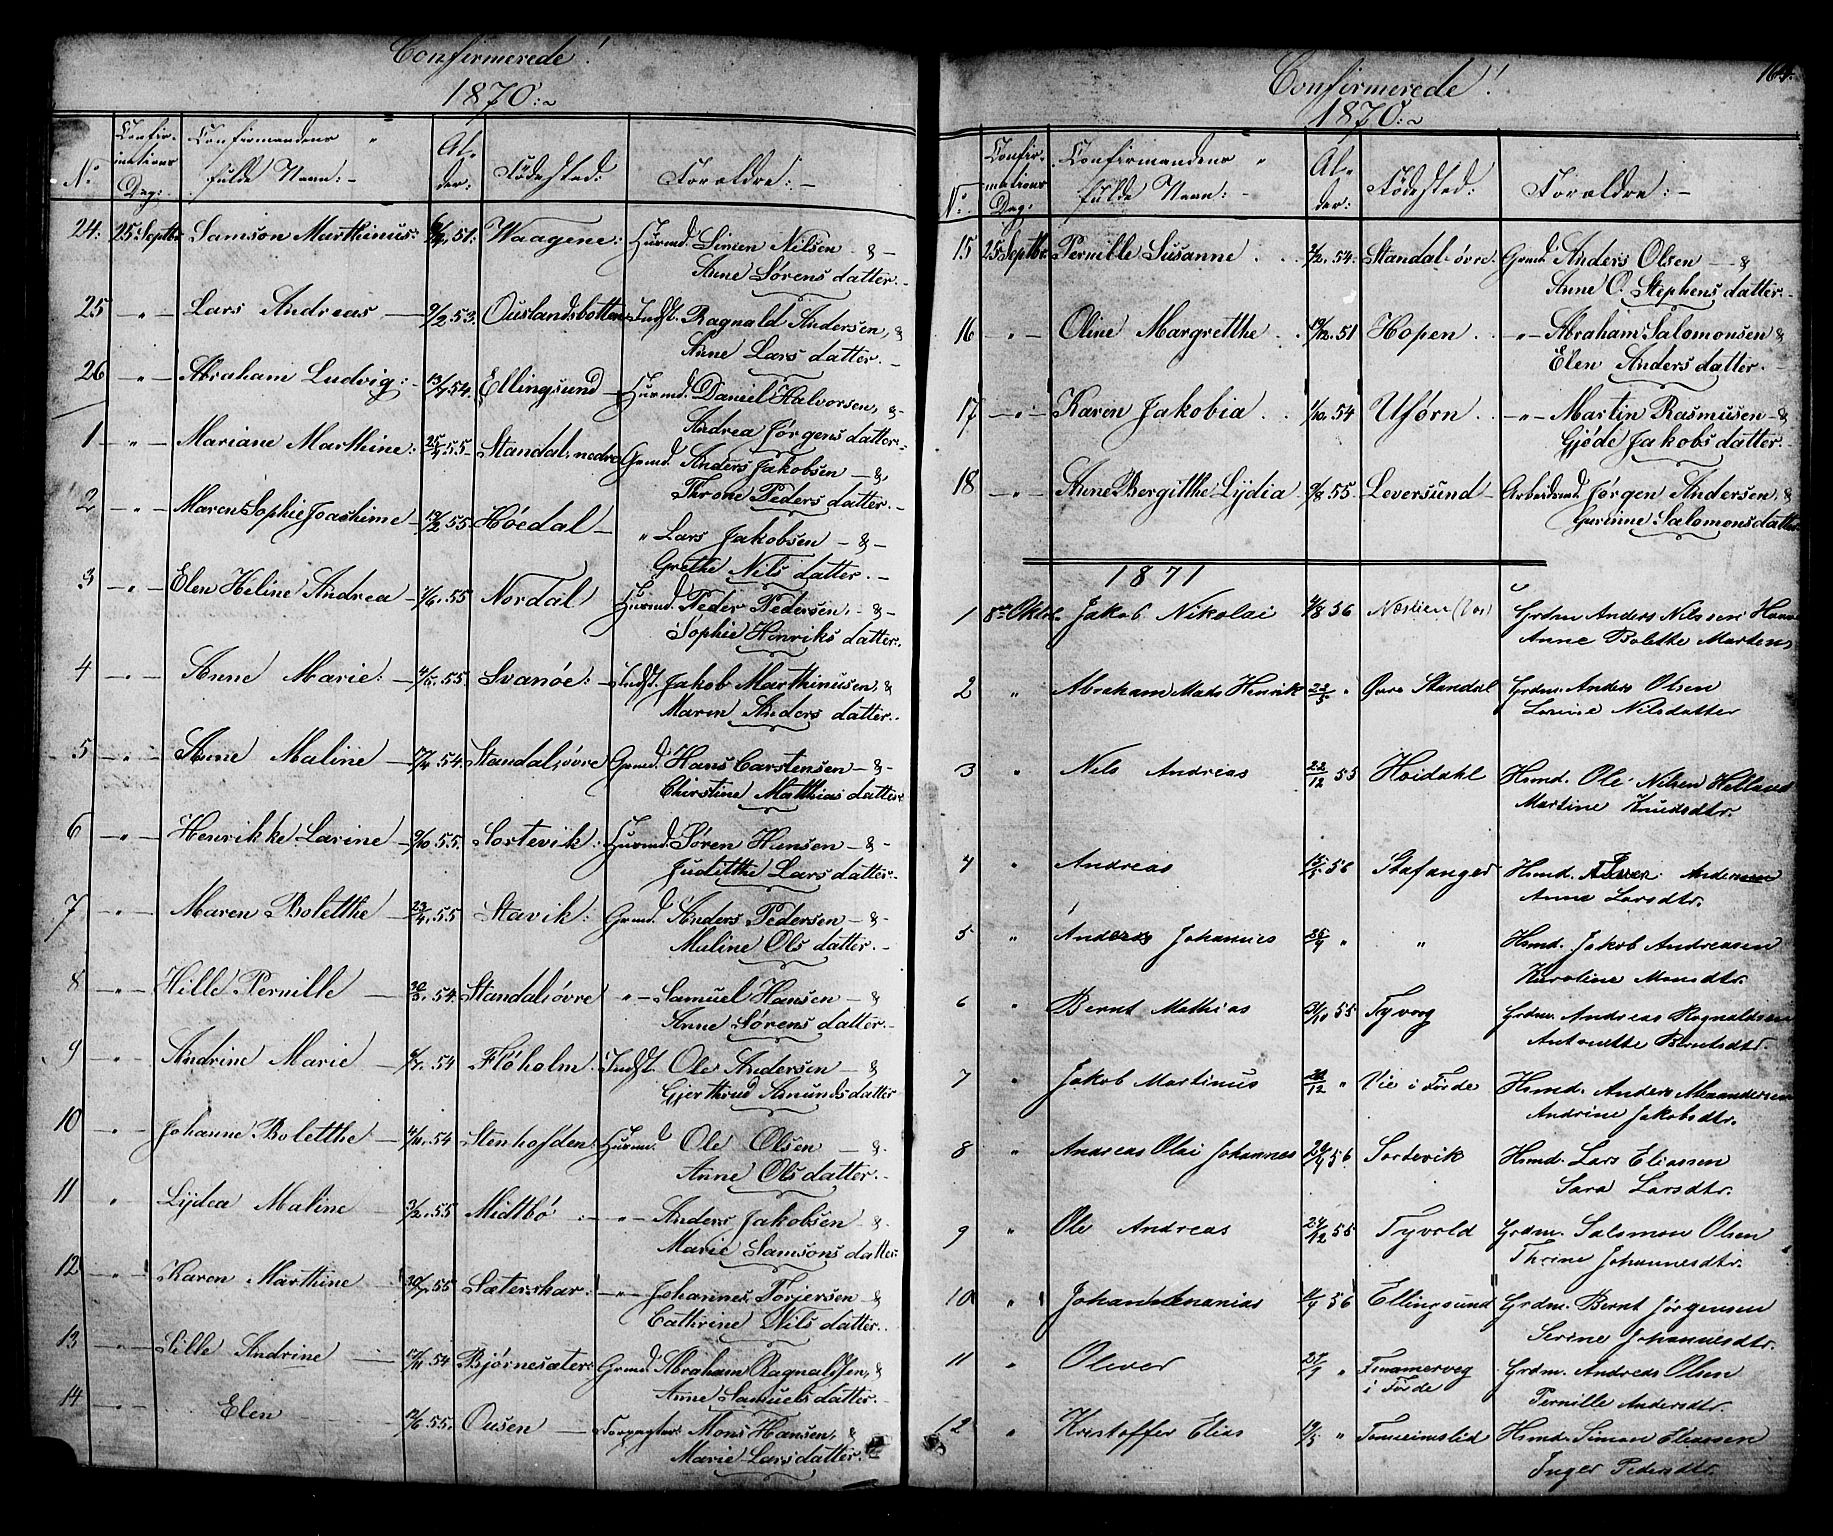 Confirmerede!
1870:~
No:
Confir-
mations
Dag:
Confirmandens
fulde Navn:-
Al-
der:
Fødested:
Foraldre:-
24. 25 Septbr Samson Marthinus: 51. Waagene: Huusmd. Simen Nilsen - & -
Anne Sørens datter.-
25 -"- Lars Andreas - 9/2 53. Indst. Ragnald Andersen, &
Anne Lars datter.-
26 -"- Abraham Ludvig:- 13/7 54. Ellingsund - Huusmd. Daniel Halvorsen, & -
Andrea Jørgens datter.-
1 -"- Mariane Marthine: 25/4 55. Standal, nedre Grmd. Anders Jakobsen - &,
Throne Peders datter.-
2 -"- Maren Sophie Joachime - 55. Høedal - " Lars Jakobsen - & -
Grethe Nils datter.-
3 -"- Elen Heline Andrea - 55 Nordal Huusmd. Peder Pedersen, - & -
Sophie Henriks datter.
4 -"- Anne Marie:- 55. Svanøe:- Indst. Jakob Marthinusen, &
Maren Anders datter.-
5 -"- Anne Maline 54. Standal, øvre Grmd. Hans Carstensen - & -
Christine Matthias datter
6 -"- Henrikke Larine - 9/10 55. Sortevik: Huusmd. Søren Hansen - & -
Judithe Lars datter.-
7 -"- Maren Boletthe - 23/4 55 Stavik: Grmd. Anders Pedersen - & -
Maline Ols datter.-
8 -"- Hille Pernille - 54. Standal, øvre " - Samuel Hansen - &
Anne Sørens datter.-
9 -"- Andrine Marie - 54 Fløholm Indst. Ole Andersen - &
Gjerthrud Asmunds datter
10 -"- Johanne Boletthe - 54 Stenhofden Huusmd. Ole Olsen - &.
Anne Ols datter.-
11 " Lydea Maline - 3/2 55 Midtbø :- " - Anders Jakobsen &
Marie Samsons datter
12 -"- Karen Marthine 55 Sæterskar: - " - Johannes Torjersen - &
Cathrine Nils datter.
13 -"- Sille Andrine - 54 Bjørnesæter Grmd. Abraham Ragnaldsen, &
Anne Samuels datter.
14 -"- Elen 55. Ousen - Forpagter Mons Hansen, &
Marie Lars datter.
164.
Confirmerede!
1870:~
No:
Confir-
mations
Dag:
Confirmandens
fulde Navn:-
Al-
der:
Fødested:
Foraldre:-
15 25 Septbr Pernille Susanne . . 54. Standal øvre. Grmd. Anders Olsen - &
Anne O. Stephens datter.-
16 -"- Oline Margretthe . 51 Hopen . . -"- Abraham Salomonsen &
Elen Anders datter.-
17 -"- Karen Jakobia . . 1/10 54 Uførn . . -"- Martin Rasmusen - &
Gjøde Jakobs datter.-
18 -"- Anne Bergitthe Lydia . 9/8 55. Leversund - Arbeidsmd. Jørgen Andersen, &
Gurinne Salomons datter
1871
1 8de Oktbr. Jakob Nikolai 56 Grdm Anders Nilssen
Anne Bolethe Martens
2 " Abraham Mats Henrik 22/5 " Øvre Standal Grdm. Anders Olsen
Lovine Nilsdatter
3 " Nils Andreas 22/12 55 Høidahl Hsmd. Ole Nilsen Helland
Martine Knudsdtr.
4 " Andreas 56 Stafanger Hsmd. Andersen
Anne Larsdtr.
5 " Anders Johannes " " Hsmd. Jakob Andreasen
Karoline Monsdtr.
6 " Bernt Mathias 31/10 55 Grdm. Andreas Ragnaldsen
Antonette Berntsdtr.
7 " Jakob Martinus " Vie i Førde Hsmd. Anders
Andrine Jakobsdtr.
8 " Andreas Olai Johannes 56 Sortevik Hsmd. Lars Eliassen
Sara Larsdtr.
9 " Ole Andreas 27/12 55 Tyvold Grdm. Salomon Olsen
Thrine Johannesdtr.
10 " Johan Ananias 56 Ellingsund Grdm. Bernt Jørgensen
Serine Johannesdtr.
11 " Oliver " i Førde Grdm. Andreas Olsen
Pernille Andersdtr.
12 " Kristoffer Elias " Hsmd. Simon Eliassen
Inger Pedersdtr.